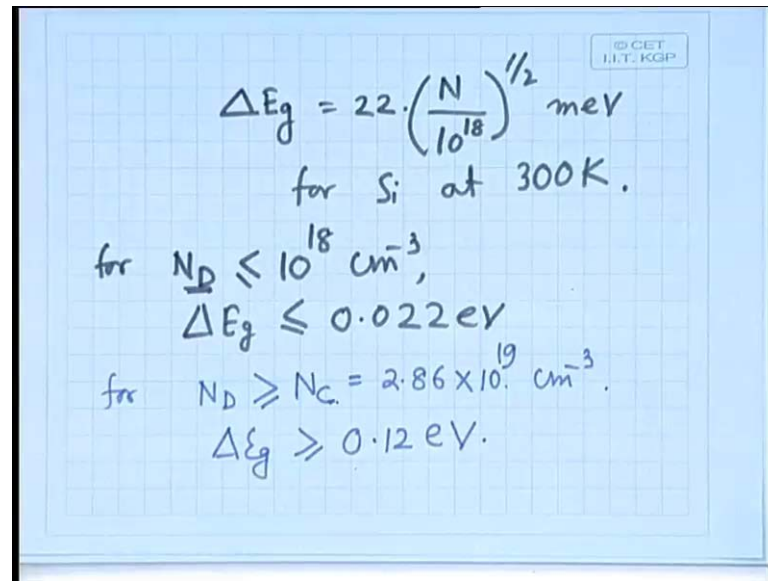 © CET
I.I.T. KGP
ΔEg = 22.(N/10^18)^1/2 meV
for Si at 300K.
for N_D ≤ 10^18 cm^-3,
ΔEg ≤ 0.022 eV
for N_D ≥ N_C. = 2.86 X 10^19. cm^-3.
ΔEg ≥ 0.12 eV.